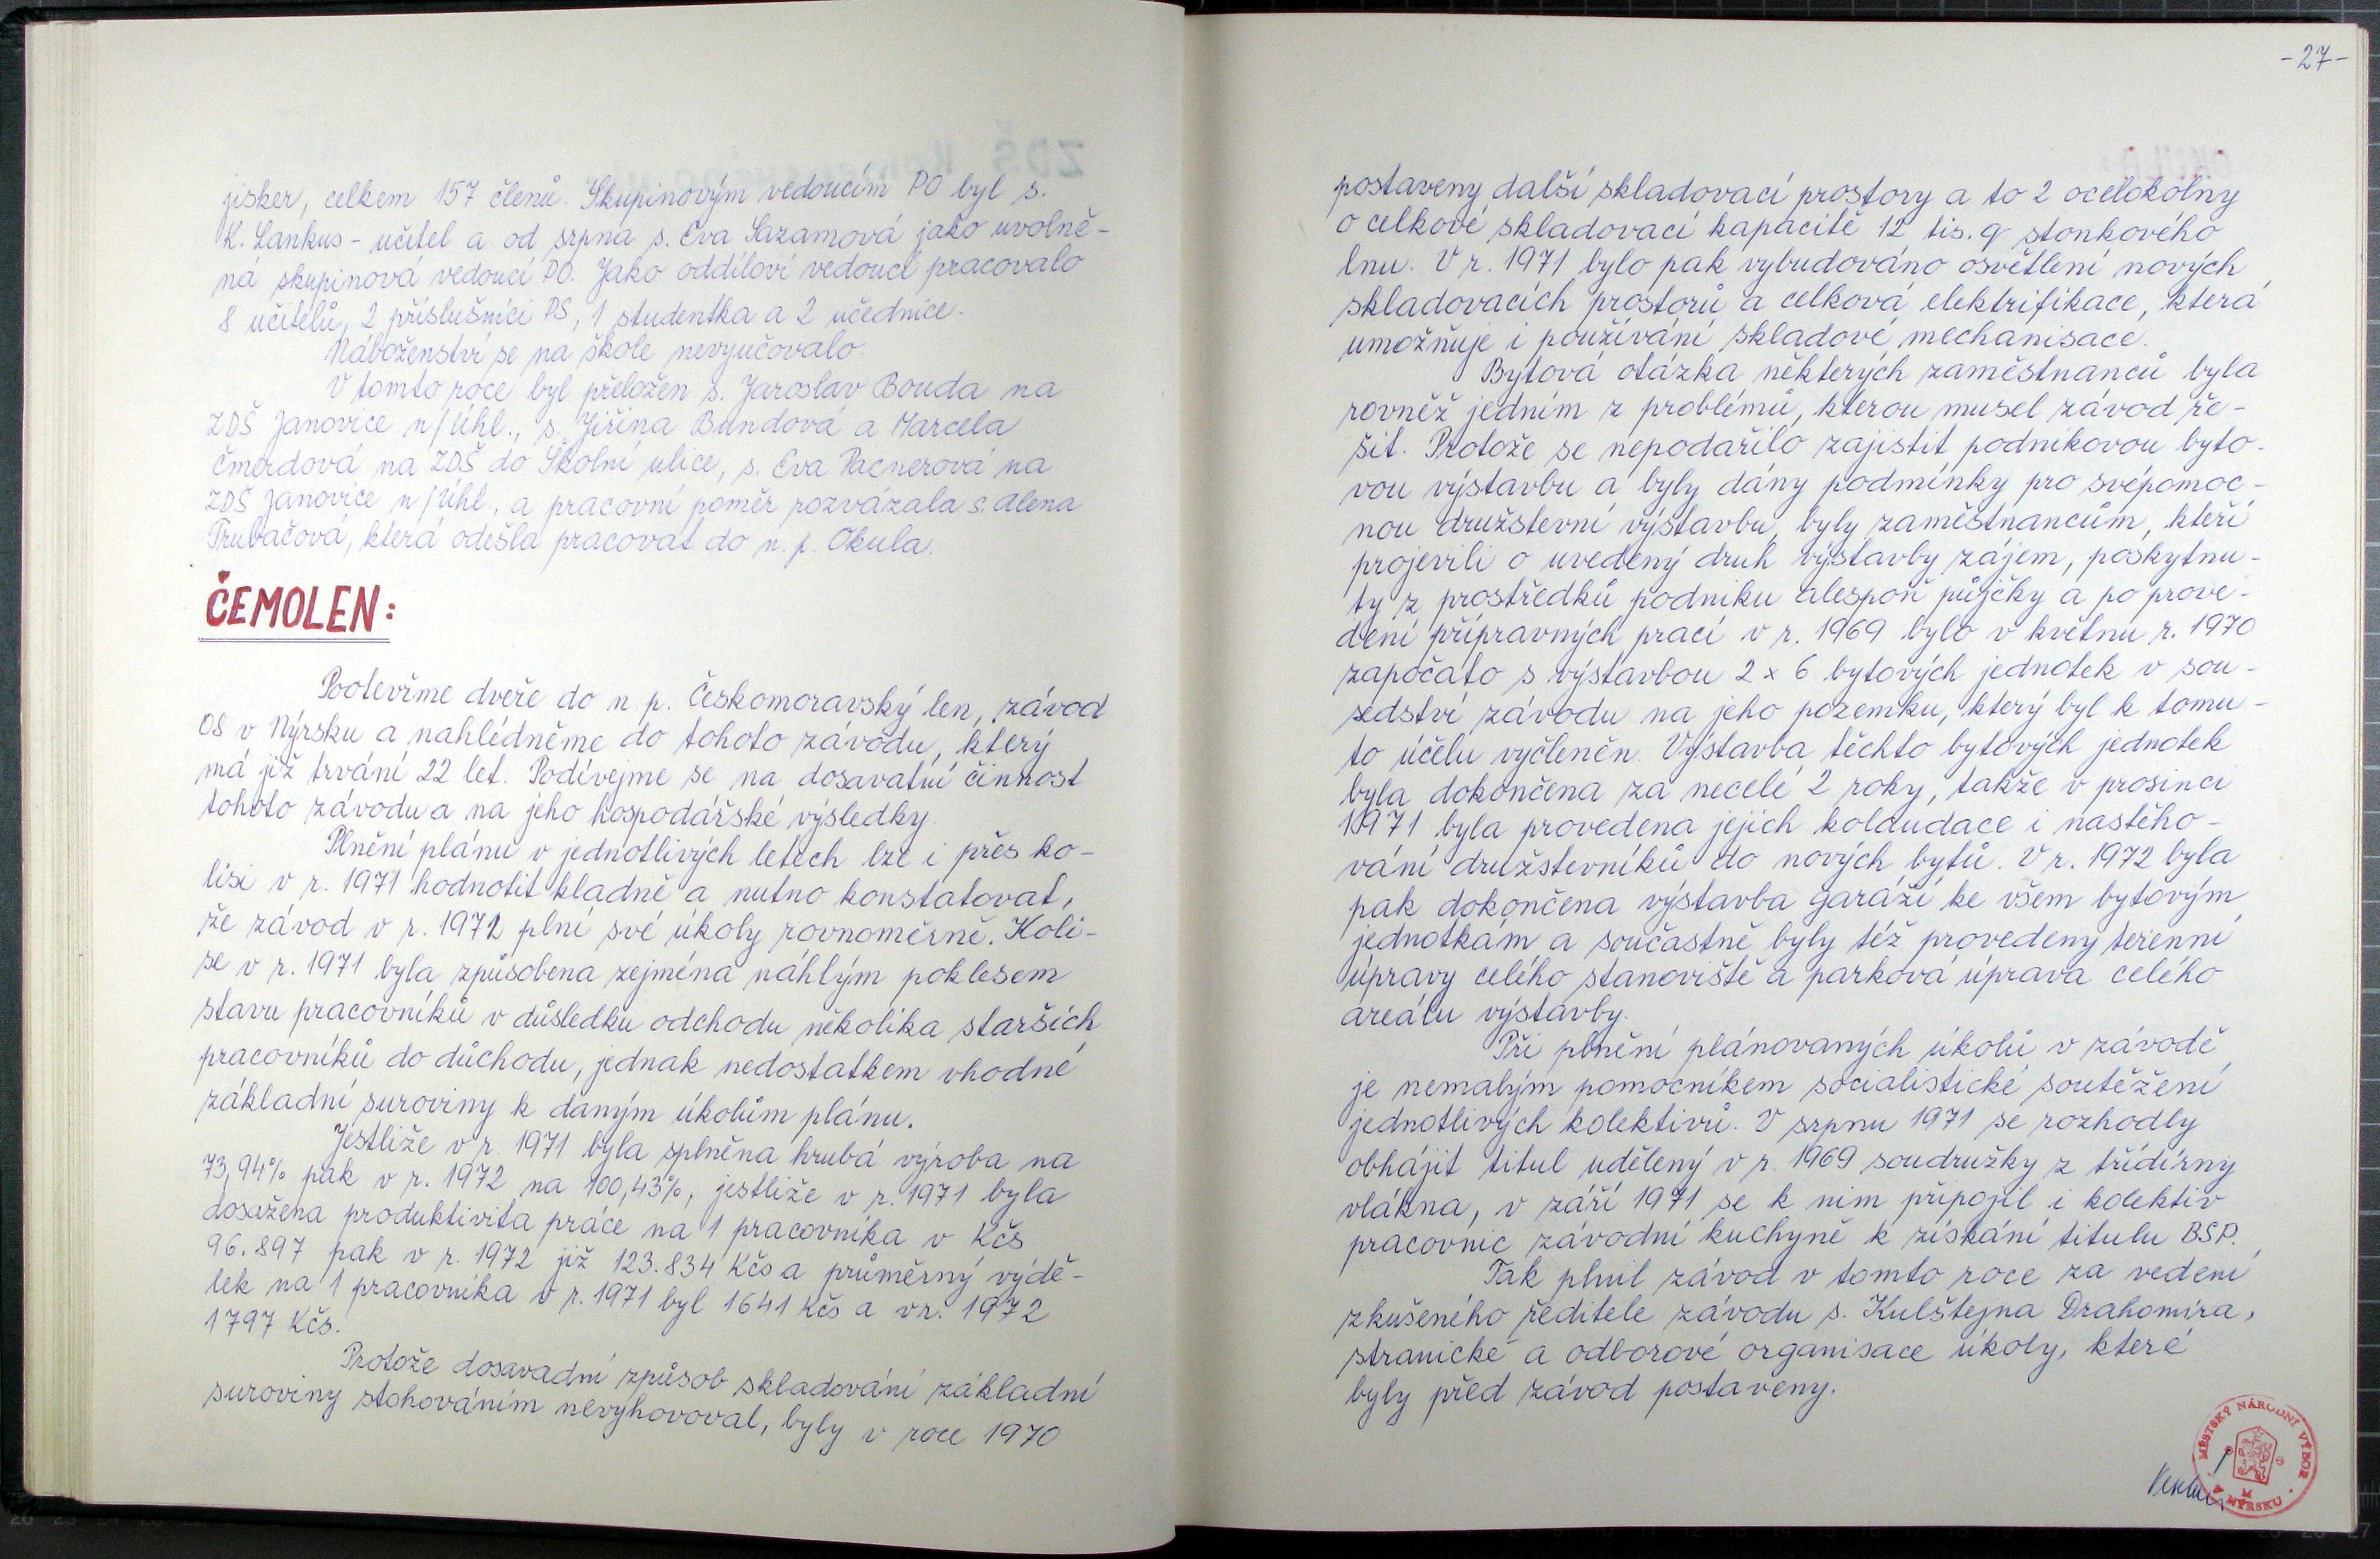 jisker, celkem 157 členů. Skupinovým vedoucím PO byl s.
K. Lankus - učitel a od srpna s. Eva Sazamová jako uvolně-
ná skupinová vedoucí PO. Jako oddíloví vedoucí pracovalo
8 učitelů, 2 příslušníci PS, 1 studentka a 2 učednice.
Náboženství se na škole nevyučovalo.
V tomto roce byl přeložen s. Jaroslav Bouda na
ZDŠ Janovice n/Úhl., s. Jiřina Bundová a Marcela
Čmerdová na ZDŠ do Školní ulice, s. Eva Pacnerová na
ZDŠ Janovice n/Úhl., a pracovní poměr rozvázala s. Alena
Trubačová, která odešla pracovat do n. p. Okula.
ČEMOLEN:
Pootevřme dveře do n. p. Českomoravský len, závod
08 v Nýrsku a nahlédněme do tohoto závodu, který
má již trvání 22 let. Podívejme se na dosavatní činnost
tohoto závodu a na jeho hospodářské výsledky.
Plnění plánu v jednotlivých letech lze i přes ko-
lisi v r. 1971 hodnotit kladně a nutno konstatovat,
že závod v r. 1972 plní své úkoly rovnoměrně. Koli-
se v r. 1971 byla způsobena zejména náhlým poklesem
stavu pracovníků v důsledku odchodu několika starších
pracovníků do důchodu, jednak nedostatkem vhodné
základní suroviny k daným úkolům plánu.
Jestliže v r. 1971 byla splněna hrubá výroba na
73,94% pak v r. 1972 na 100,43%, jestliže v r. 1971 byla
dosažena produktivita práce na 1 pracovníka v Kčs
96.897 pak v r. 1972 již 123.834 Kčs a průměrný výdě-
lek na 1 pracovníka v r. 1971 byl 1641 Kčs a v r. 1972
1797 Kčs.
Protože dosavadní způsob skladování základní
suroviny stohováním nevyhovoval, byly v roce 1970
-27-
postaveny další skladovací prostory a to 2 ocelokolny
o celkové skladovací kapacitě 12 tis. q stonkového
lnu. V r. 1971 bylo pak vybudováno osvětlení nových
skladovacích prostorů a celková elektrifikace, která
umožňuje i používání skladové mechanisace.
Bytová otázka některých zaměstnanců byla
rovněž jedním z problémů, kterou musel závod ře-
šit. Protože se nepodařilo zajistit podnikovou byto-
vou výstavbu a byly dány podmínky pro svépomoc-
nou družstevní výstavbu, byly zaměstnancům, kteří
projevili o uvedený druh výstavby zájem, poskytnu-
ty z prostředků podniku alespoň půjčky a po prove-
dení přípravných prací v r. 1969 bylo v květnu r. 1970
započato s výstavbou 2 x 6 bytových jednotek v sou-
sedství závodu na jeho pozemku, který byl k tomu-
to účelu vyčleněn. Výstavba těchto bytových jednotek
byla dokončena za necelé 2 roky, takže v prosinci
1971 byla provedena jejich kolaudace i nastěho-
vání družstevníků do nových bytů. V r. 1972 byla
pak dokončena výstavba garáží ke všem bytovým
jednotkám a součastně byly též provedeny terénní
úpravy celého stanoviště a parková úprava celého
areálu výstavby.
Při plnění plánovaných úkolů v závodě
je nemalým pomocníkem socialistické soutěžení
jednotlivých kolektivů. V srpnu 1971 se rozhodly
obhájit titul udělený v r. 1969 soudružky z třídírny
vlákna, v září 1971 se k nim připojil i kolektiv
pracovnic závodní kuchyně k získání titulu BSP.
Tak plnil závod v tomto roce za vedení
zkušeného ředitele závodu s. Kulštejna Drahomíra,
stranické a odborové organisace úkoly, které
byly před závod postaveny.
MĚSTSKÝ NÁRODNÍ VÝBOR
V NÝRSKU